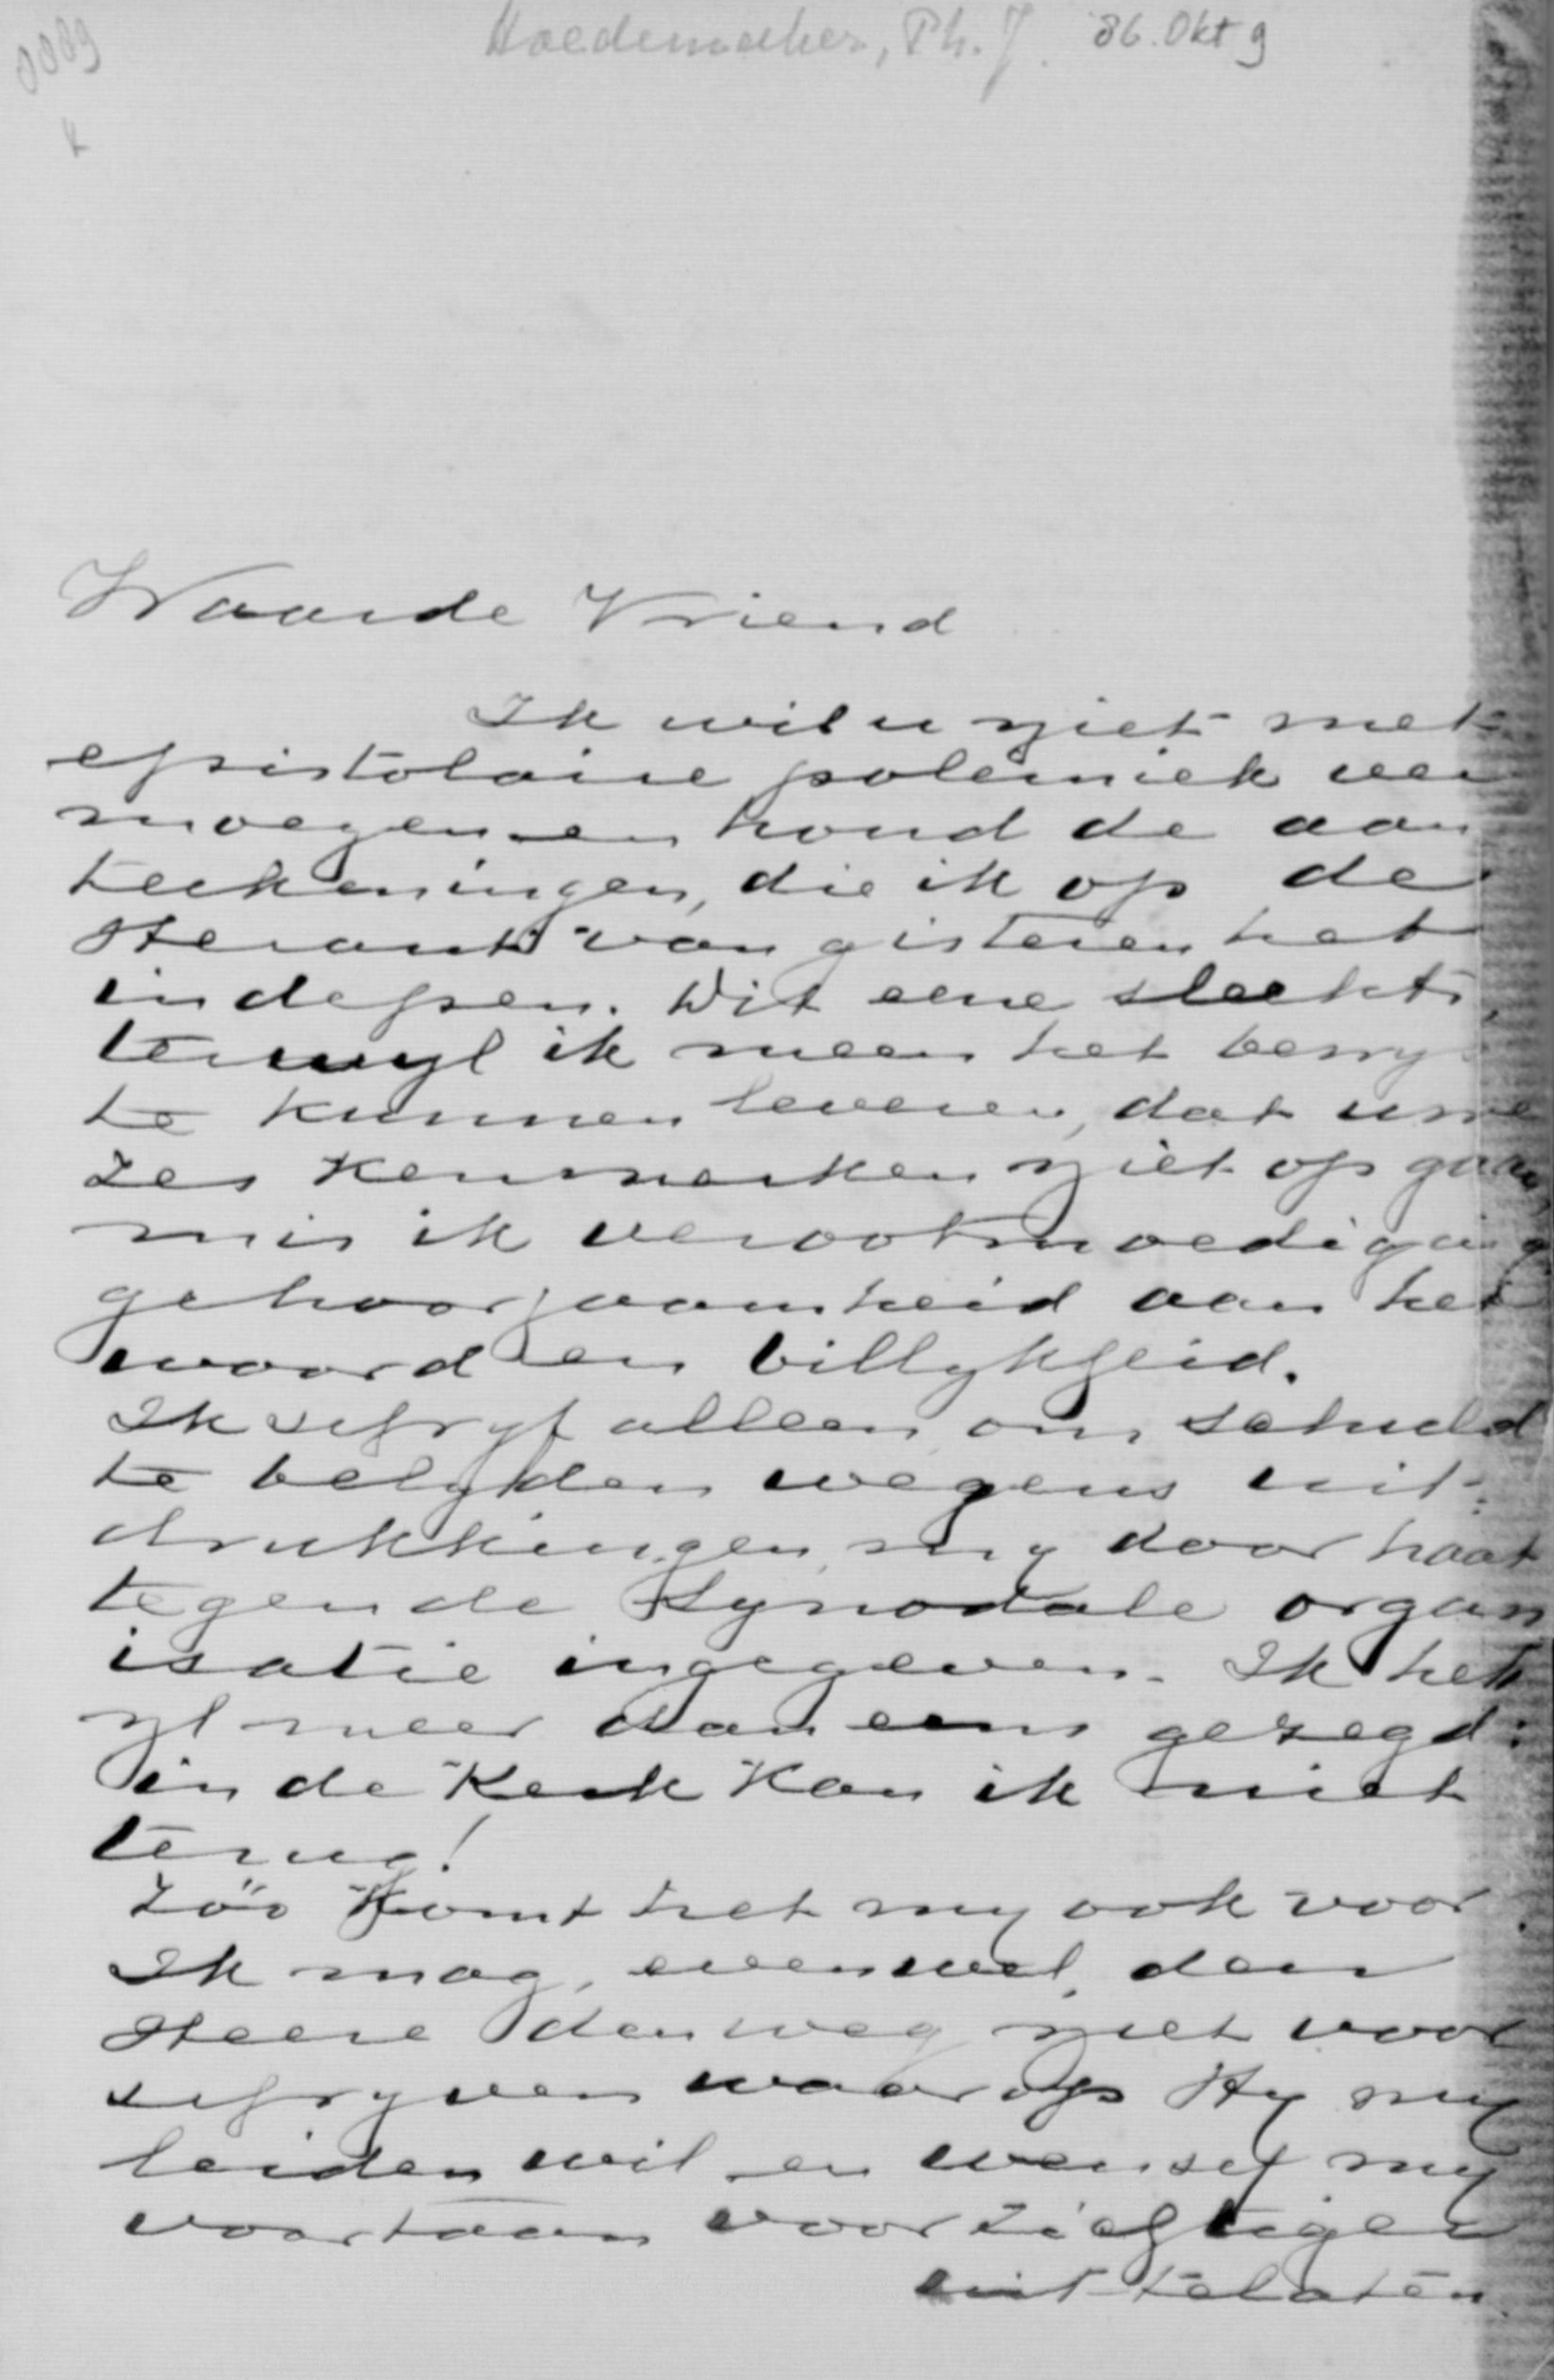 0009
Hoedemaker, Ph. J. 86. Okt 9
k
Waarde Vriend
Ik wil u niet met
epistolaire polemiek ver
moeyen en houd de aan
teekeningen, die ik op de
Heraut van gisteren heb
in depen. Dit eene slechts,
terwyl ik meen het bewys
te kunnen leveren, dat uwe
zes kenmerken niet op gaan
mis ik verootmoediging
gehoorzaamheid aan het
woord en billykheid.
Ik schryf alleen om schuld
te belyden wegens uit:
drukkingen my door haat
tegen de Synodale organ
isatie ingegeven. Ik heb
nl meer dan eens gezegd:
in de Kerk kan ik niet
terug!
Zóó komt het my ook voor.
Ik mag, evenwel, den
Heere den weg niet voor
schryven waarop Hy my
leiden wil en wensch my
voortaan voorzichtiger
uit te laten.